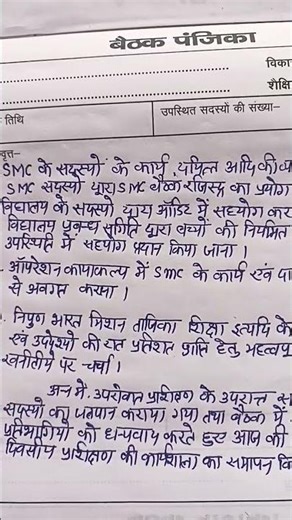 बैठक पंजिका
विका
शैक्षि
तिथि
उपस्थित सदस्यों की संख्या–
वृत्त–
SMC के सदस्यों के कार्य, दायित्व आदि की
SMC सदस्यों द्वारा SMC बैठक रजिस्टर का प्रयोग
विद्यालय के सदस्यो द्वारा ऑडिट में सहयोग कर
विद्यालय प्रबन्ध समिति द्वारा बच्चों की नियमित
उपस्थिति में सहयोग प्रदान किया जाना।
ऑपरेशन कायाकल्प में SMC के कार्य एवं
से अवगत कराना।
निपुण भारत मिशन तालिका शिक्षा इत्यादि के
एवं उद्देश्यों की शत प्रतिशत प्राप्ति हेतु महत्वपू
रणनीतियो पर चर्चा।
अन्त में उपरोक्त प्रशिक्षण के उपरान्त
सदस्यों का जलपान कराया गया तथा बैठक में
प्रतिभागियों को धन्यवाद करते हुए आज की
दिवसीय प्रशिक्षण की कार्यशाला का समापन कि